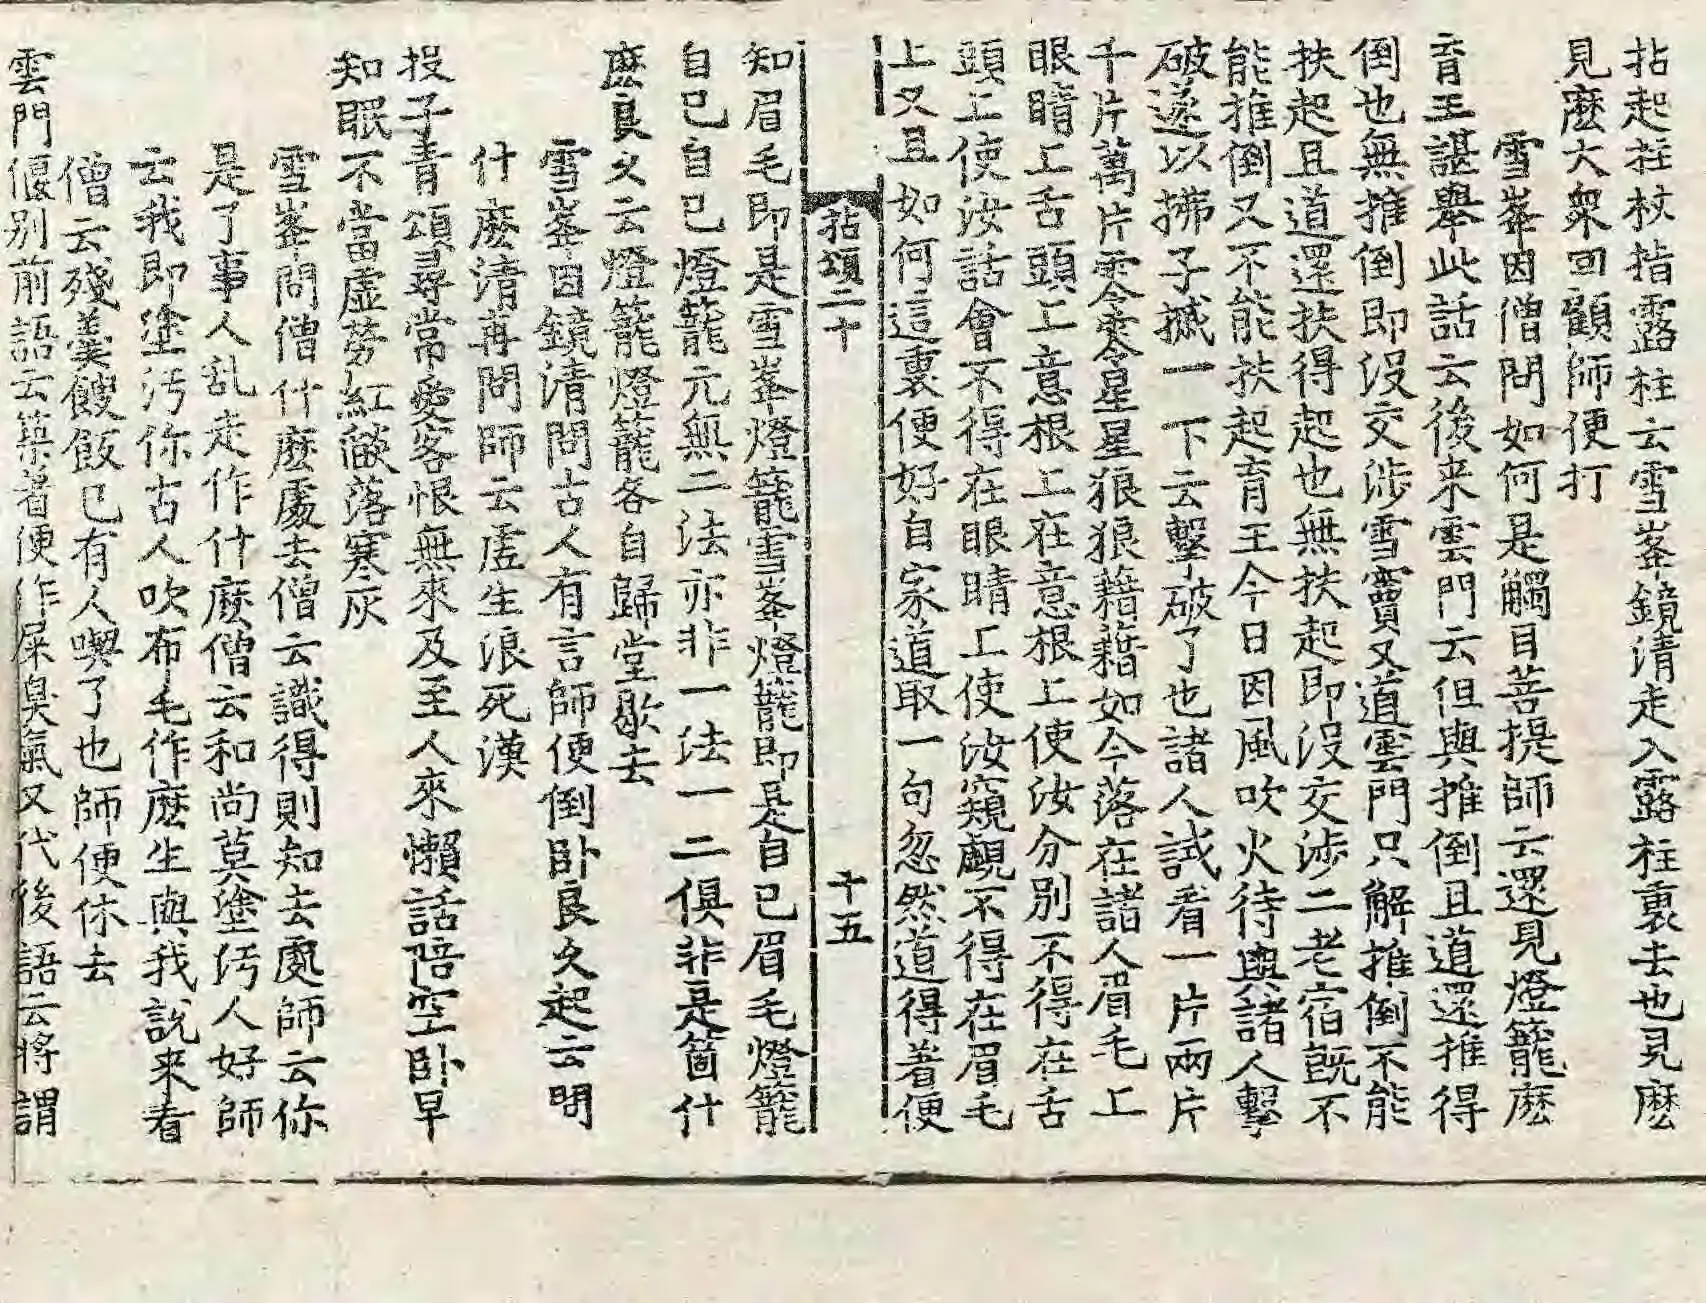 拈起拄杖指露柱云雪峯鏡清走入露柱裏去也見麽
見麽大衆回顧師便打
雪峯因僧問如何是觸目菩提師云還見燈籠麽
育王諶舉此話云後来雲門云但與推倒且道還推得
倒也無推倒即没交涉雪竇又道雲門只解推倒不能
扶起且道還扶得起也無扶起即没交涉二老宿既不
能推倒又不能扶起育王今日因風吹火待與諸人擊
破遂以拂子撼一下云擊破了也諸人試看一片兩片
千片萬片零零星星狼狼藉藉如今落在諸人眉毛上
眼睛上舌頭上意根上在意根上使汝分別不得在舌
頭上使汝話會不得在眼睛上使汝窺覷不得在眉毛
上又且如何這裏便好自家道取一句忽然道得着便
拈頌二十 十五
知眉毛即是雪峯燈籠雪峯燈籠即是自己眉毛燈籠
自己自己燈籠元無二法亦非一法一二俱非是箇什
麽良久云燈籠燈籠各自歸堂歇去
雪峯因鏡清問古人有言師便倒卧良久起云問
什麽清再問師云虚生浪死漢
投子青頌尋常愛客恨無來及至人來懶話陪空卧早
知眠不當虚勞紅燄落寒灰
雪峯問僧什麽處去僧云識得則知去處師云你
是了事人乱走作什麽僧云和尚莫塗汚人好師
云我即塗汚你古人吹布毛作麽生與我説来看
僧云殘羹餿飯已有人喫了也師便休去
雲門偃别前語云築著便作屎臭氣又代後語云將謂